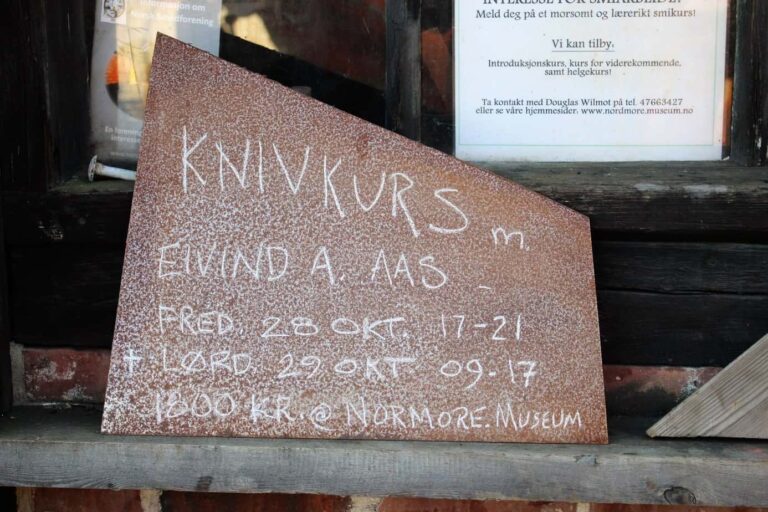 Informasjon om
Norsk Smedforening
INTERESSE FOR SMIARBEIDE?
Meld deg på et morsomt og lærerikt smikurs!
Vi kan tilby:
Introduksjonskurs, kurs for viderekommende,
samt helgekurs!
Ta kontakt med Douglas Wilmot på tel. 47663427
eller se våre hjemmesider: www.nordmore.museum.no
En forening
interesse
KNIVKURS m.
EIVIND A. AAS
FRED. 28 OKT. 17-21
+ LØRD 29 OKT 09-17
1800 KR. @ NORMORE.MUSEUM